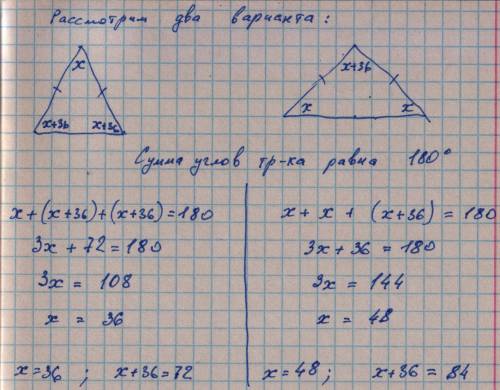 Рассмотрим два варианта:
x
x+36 x+36
x+36
x x
Сумма углов тр-ка равна 180°
x+(x+36)+(x+36)=180
3x+72=180
3x = 108
x = 36
x=36 ; x+36=72
x + x + (x+36) = 180
3x + 36 = 180
3x = 144
x = 48
x=48 ; x+36 = 84